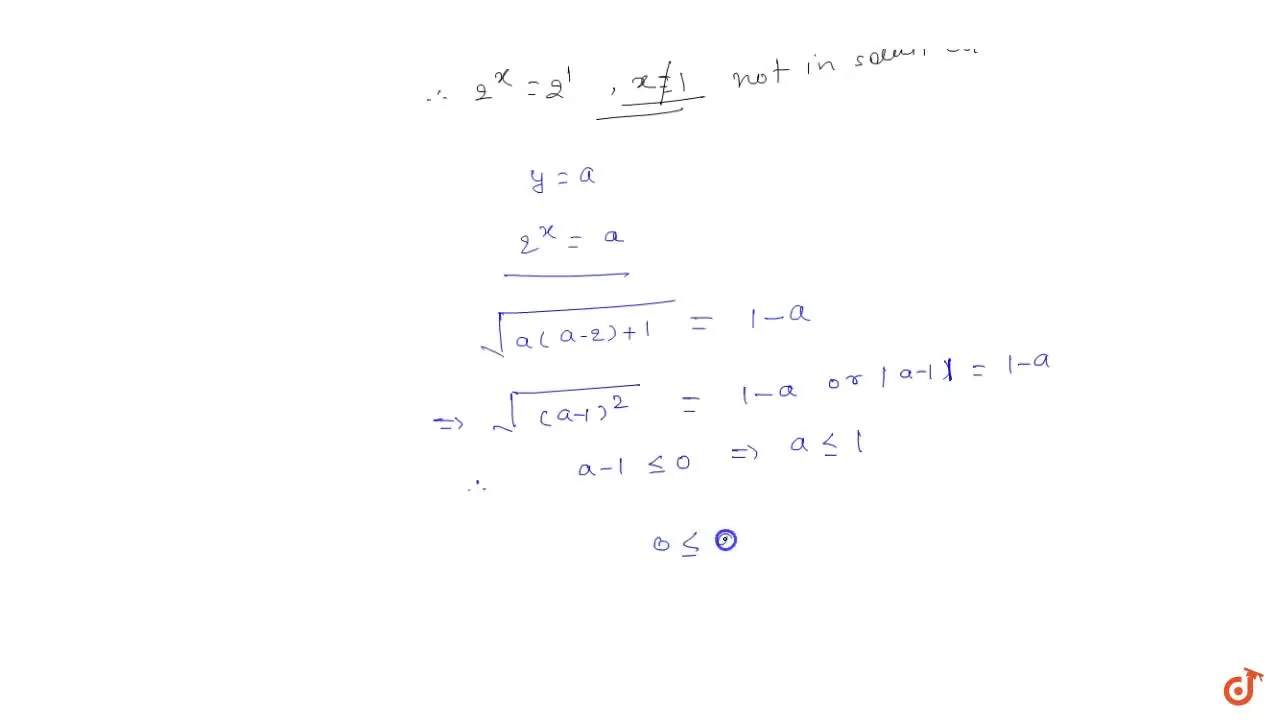 ∴ 2^x = 2^1 , x ≠ 1 not in
y = a
2^x = a
√(a(a-2)+1) = 1-a
⇒ √((a-1)^2) = 1-a or |a-1| = 1-a
∴ a-1 ≤ 0 ⇒ a ≤ 1
0 ≤